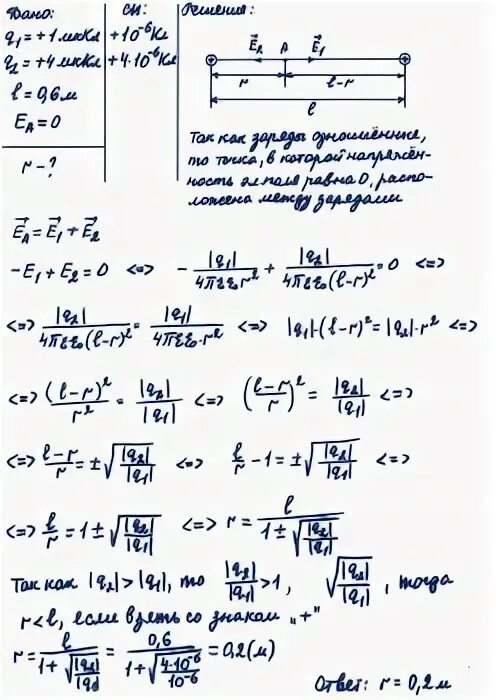 Дано: СИ: Решение:
q₁=+1мкКл +10⁻⁶Кл
q₂=+4мкКл +4·10⁻⁶Кл
l=0,6м
E_A=0
r-?
E⃗₂ A E⃗₁
r l-r
l
Так как заряды одноимённые,
то точка, в которой напряжён-
ность эл.поля равна 0, распо-
ложена между зарядами
E⃗_A=E⃗₁+E⃗₂
-E₁+E₂=0 <=> -|q₁|/(4πεε₀r²)+|q₂|/(4πεε₀(l-r)²)=0 <=>
<=> |q₂|/(4πεε₀(l-r)²)=|q₁|/(4πεε₀·r²) <=> |q₁|·(l-r)²=|q₂|·r² <=>
<=> (l-r)²/r²=|q₂|/|q₁| <=> ((l-r)/r)²=|q₂|/|q₁| <=>
<=> (l-r)/r=±√(|q₂|/|q₁|) <=> l/r-1=±√(|q₂|/|q₁|) <=>
<=> l/r=1±√(|q₂|/|q₁|) <=> r=l/(1±√(|q₂|/|q₁|))
Так как |q₂|>|q₁|, то |q₂|/|q₁|>1, √(|q₂|/|q₁|), тогда
r<l, если взять со знаком „+"
r=l/(1+√(|q₂|/|q₁|))=0,6/(1+√(4·10⁻⁶/10⁻⁶))=0,2(м)
Ответ: r=0,2м